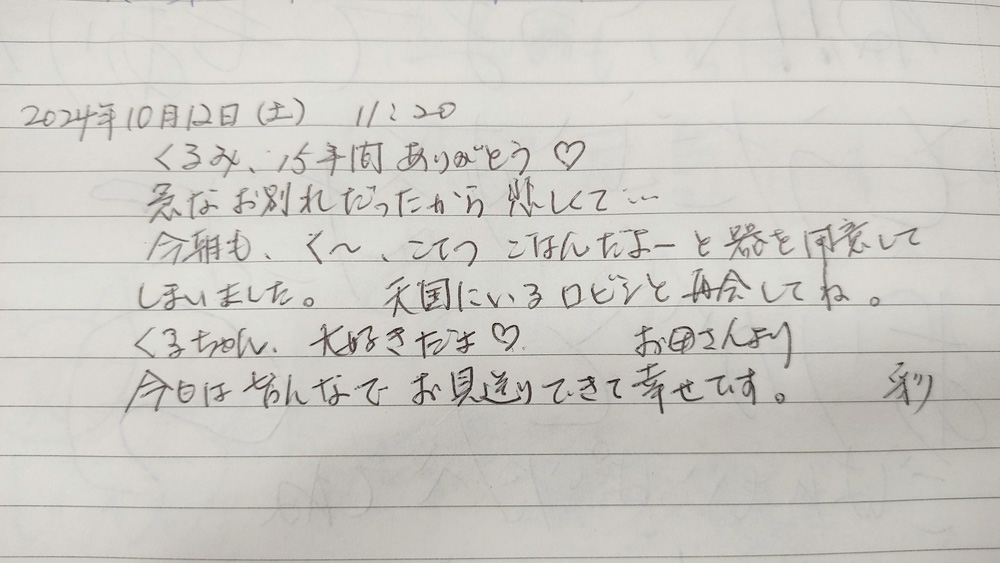 2024年10月12日(土) 11:20
くるみ、15年間ありがとう♡
急なお別れだったから悲しくて…
今朝も、く〜、こてつ ごはんだよーと器を用意して
しまいました。 天国にいるロビンと再会してね。
くるちゃん、大好きだよ♡ お母さんより
今日はみんなでお見送りできて幸せです。